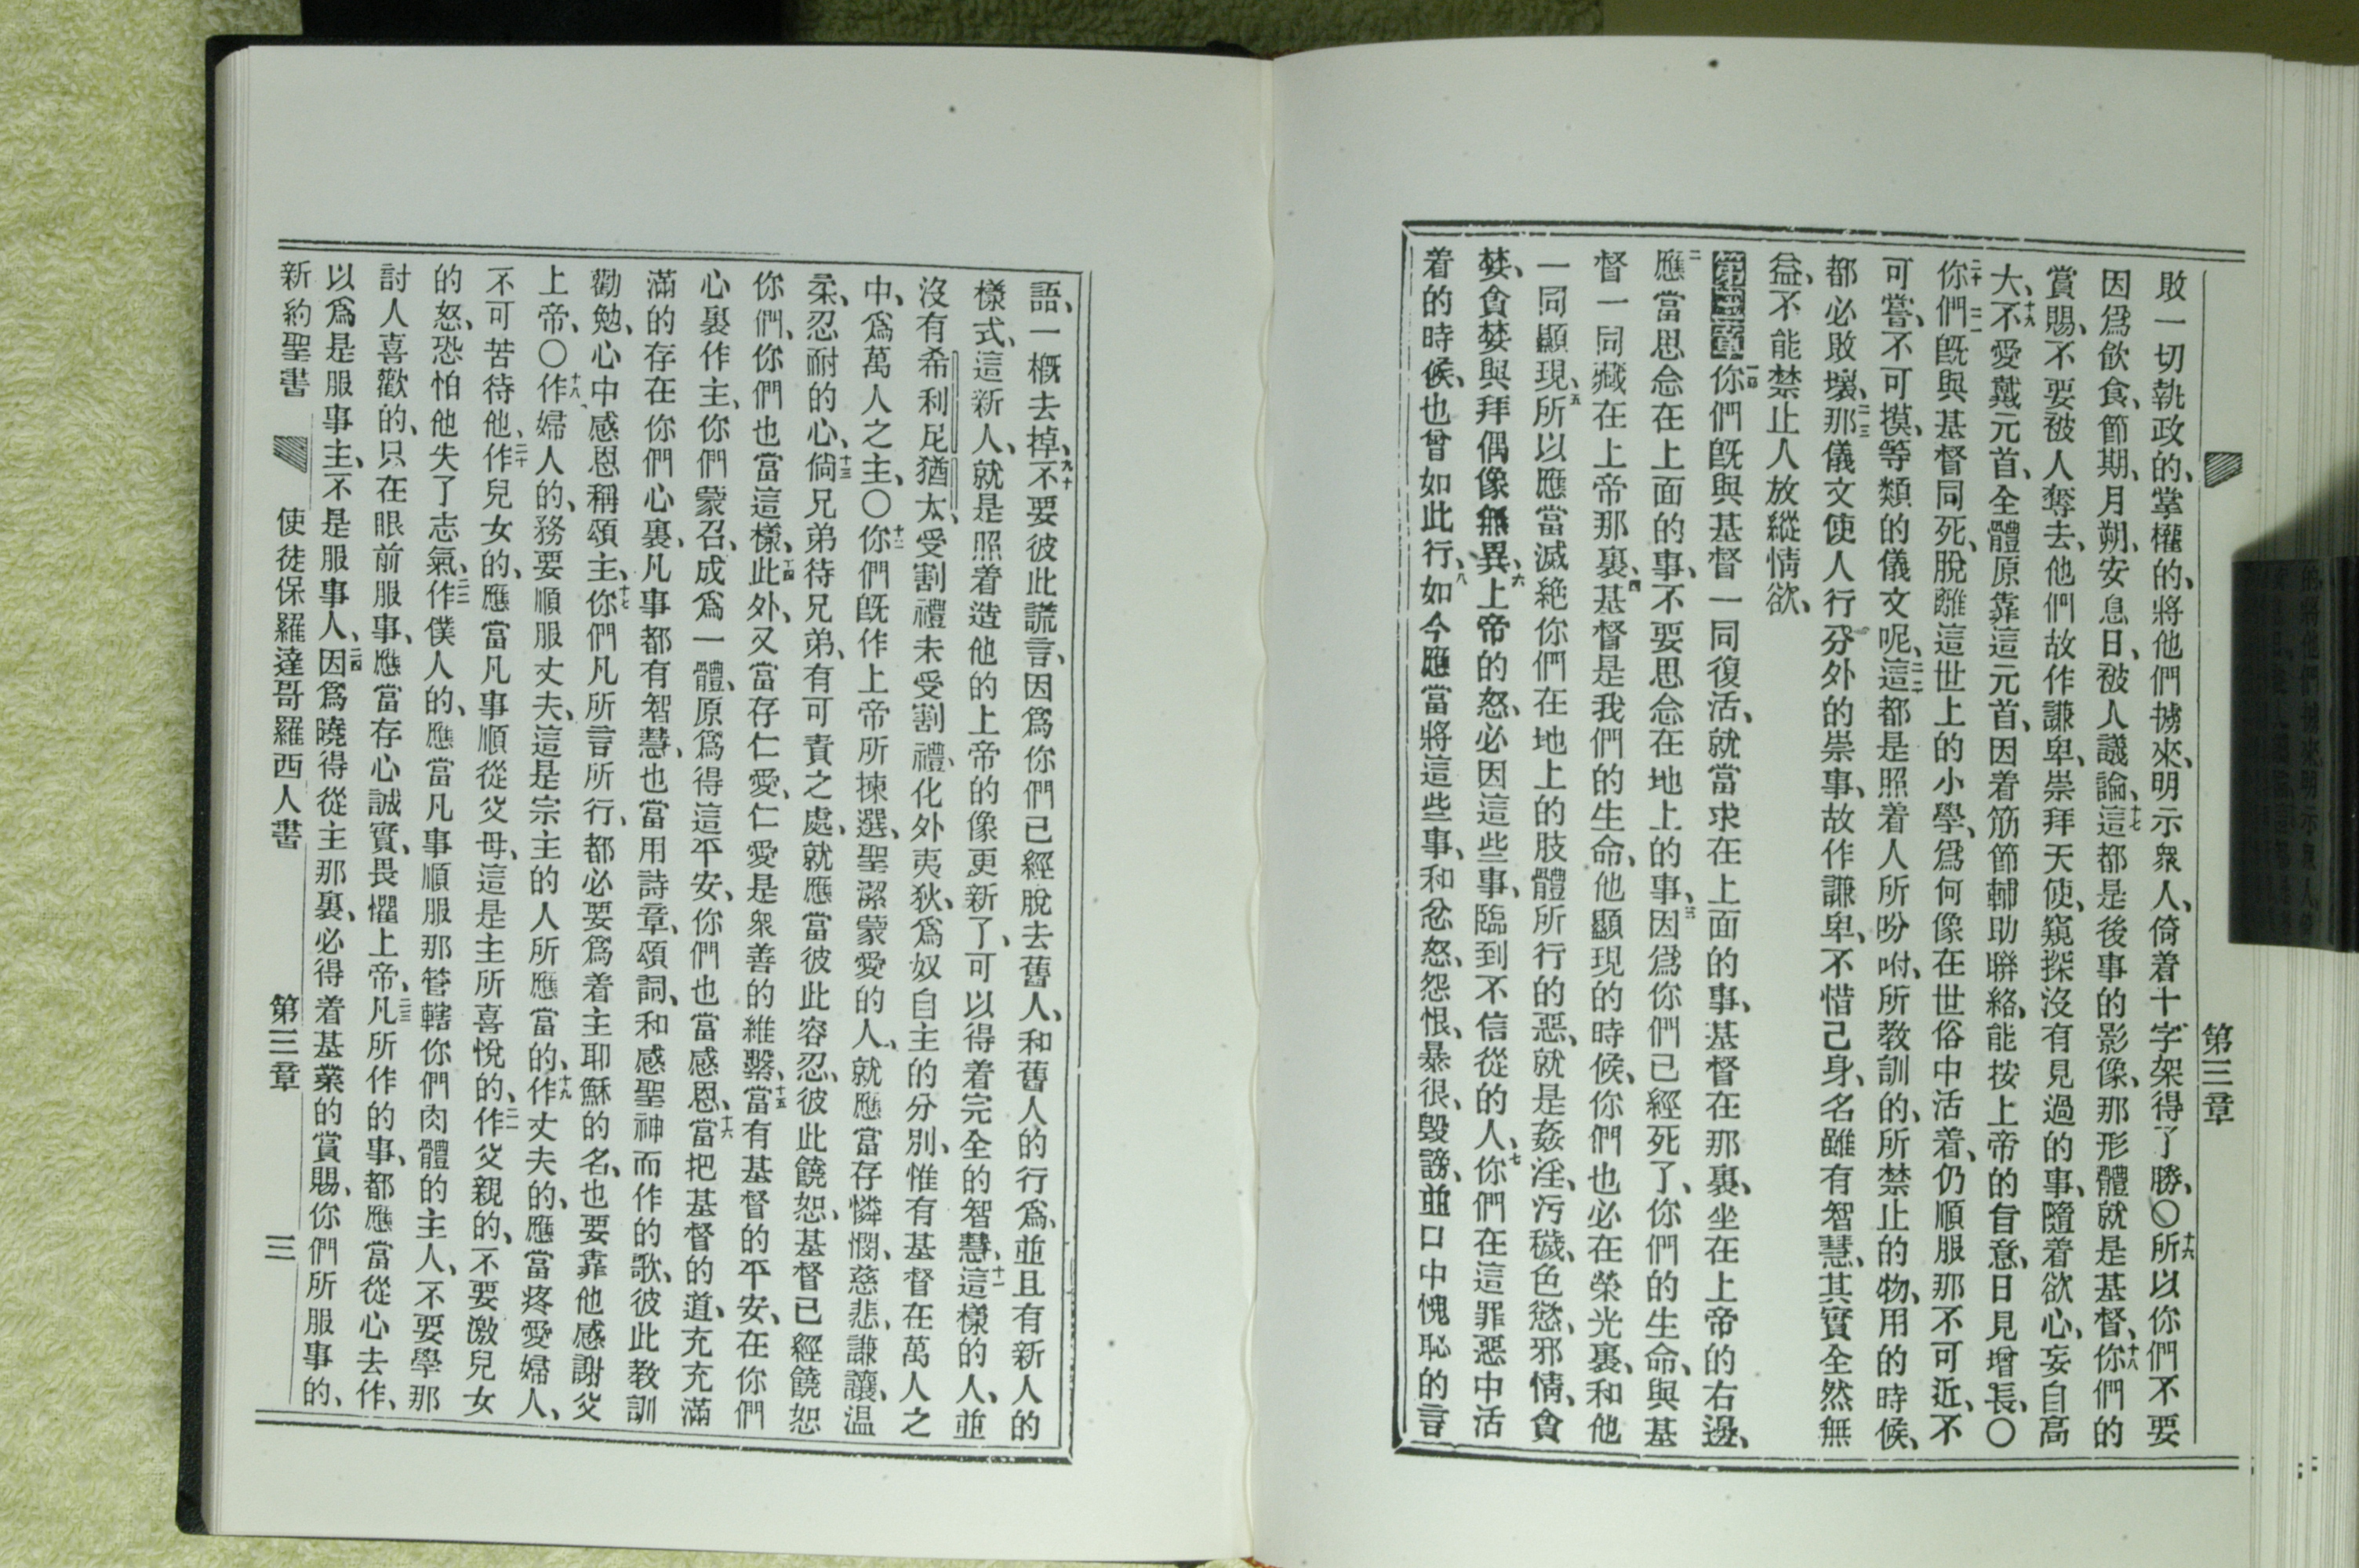 第三章
敗一切執政的、掌權的、將他們擄來、明示衆人、倚着十字架得了勝、〇十六所以你們不要
因爲飲食、節期、月朔、安息日、被人議論、十七這都是後事的影像、那形體就是基督、十八你們的
賞賜、不要被人奪去、他們故作謙卑、崇拜天使、窺探沒有見過的事、隨着欲心、妄自高
大、十九不愛戴元首、全體原靠這元首、因着筋節輔助聯絡、能按上帝的旨意、日見增長、〇
二十你們旣與基督同死、脫離這世上的小學、爲何像在世俗中活着、仍順服那不可近、不
可嘗、不可摸、等類的儀文呢、二二這都是照着人所吩咐、所教訓的、所禁止的物、用的時候、
都必敗壞、二三那儀文使人行分外的崇事、故作謙卑、不惜己身、名雖有智慧、其實全然無
益、不能禁止人放縱情欲、
第三章一你們旣與基督一同復活、就當求在上面的事、基督在那裏、坐在上帝的右邊、
二應當思念在上面的事、不要思念在地上的事、三因爲你們已經死了、你們的生命、與基
督一同藏在上帝那裏、四基督是我們的生命、他顯現的時候、你們也必在榮光裏、和他
一同顯現、五所以應當滅絕你們在地上的肢體所行的惡、就是姦淫、污穢、色慾、邪情、貪
婪、貪婪與拜偶像無異、六上帝的怒、必因這些事、臨到不信從的人、七你們在這罪惡中活
着的時候、也曾如此行、八如今應當將這些事、和忿怒、怨恨、暴很、毀謗、並口中愧恥的言
語、一概去掉、九十不要彼此謊言、因爲你們已經脫去舊人、和舊人的行爲、並且有新人的
樣式、這新人、就是照着造他的上帝的像更新了、可以得着完全的智慧、十一這樣的人、並
沒有希利尼猶太、受割禮未受割禮、化外夷狄、爲奴自主的分別、惟有基督在萬人之
中、爲萬人之主、〇十二你們旣作上帝所揀選、聖潔蒙愛的人、就應當存憐憫、慈悲、謙讓、温
柔、忍耐的心、十三倘兄弟待兄弟、有可責之處、就應當彼此容忍、彼此饒恕、基督已經饒恕
你們、你們也當這樣、十四此外、又當存仁愛、仁愛是衆善的維繫、十五當有基督的平安、在你們
心裏作主、你們蒙召、成爲一體、原爲得這平安、你們也當感恩、十六當把基督的道、充充滿
滿的存在你們心裏、凡事都有智慧、也當用詩章、頌詞、和感聖神而作的歌、彼此教訓
勸勉、心中感恩稱頌主、十七你們凡所言所行、都必要爲着主耶穌的名、也要靠他感謝父
上帝、〇十八作婦人的、務要順服丈夫、這是宗主的人所應當的、十九作丈夫的、應當疼愛婦人、
不可苦待他、二十作兒女的、應當凡事順從父母、這是主所喜悅的、二一作父親的、不要激兒女
的怒、恐怕他失了志氣、二二作僕人的、應當凡事順服那管轄你們肉體的主人、不要學那
討人喜歡的、只在眼前服事、應當存心誠實、畏懼上帝、二三凡所作的事、都應當從心去作、
以爲是服事主、不是服事人、二四因爲曉得從主那裏、必得着基業的賞賜、你們所服事的、
新約聖書 使徒保羅達哥羅西人書 第三章 三